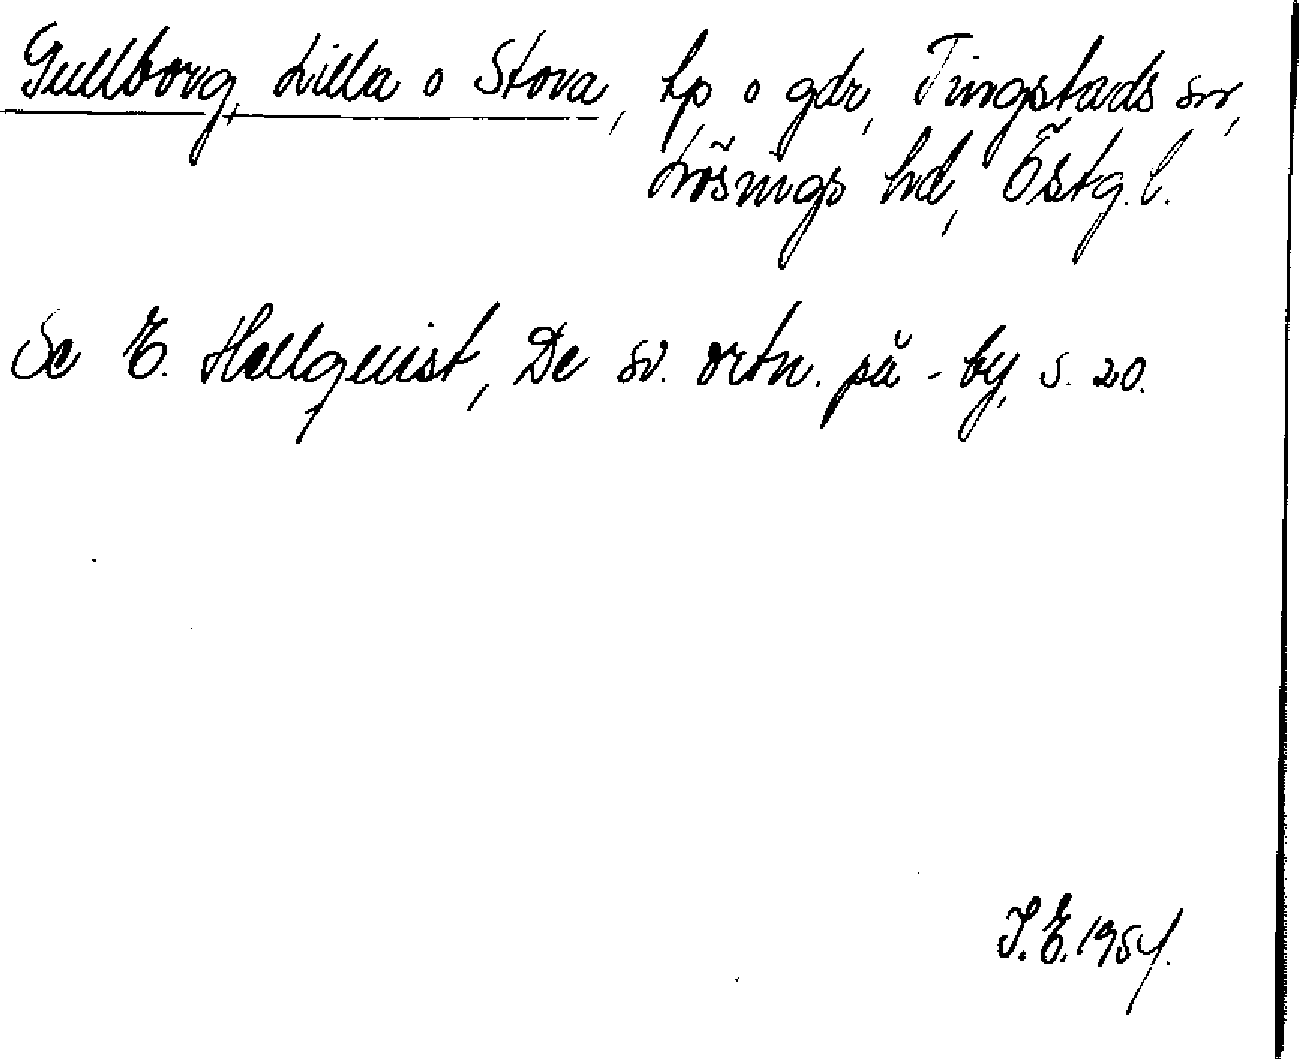 Gullborg, Lilla o Stora, hp o gdr, Tingstads sn,
Lösings hd, Östg. l.
Se E. Hellquist, De sv. ortn. på -by, s. 20.
I. E. 1954.